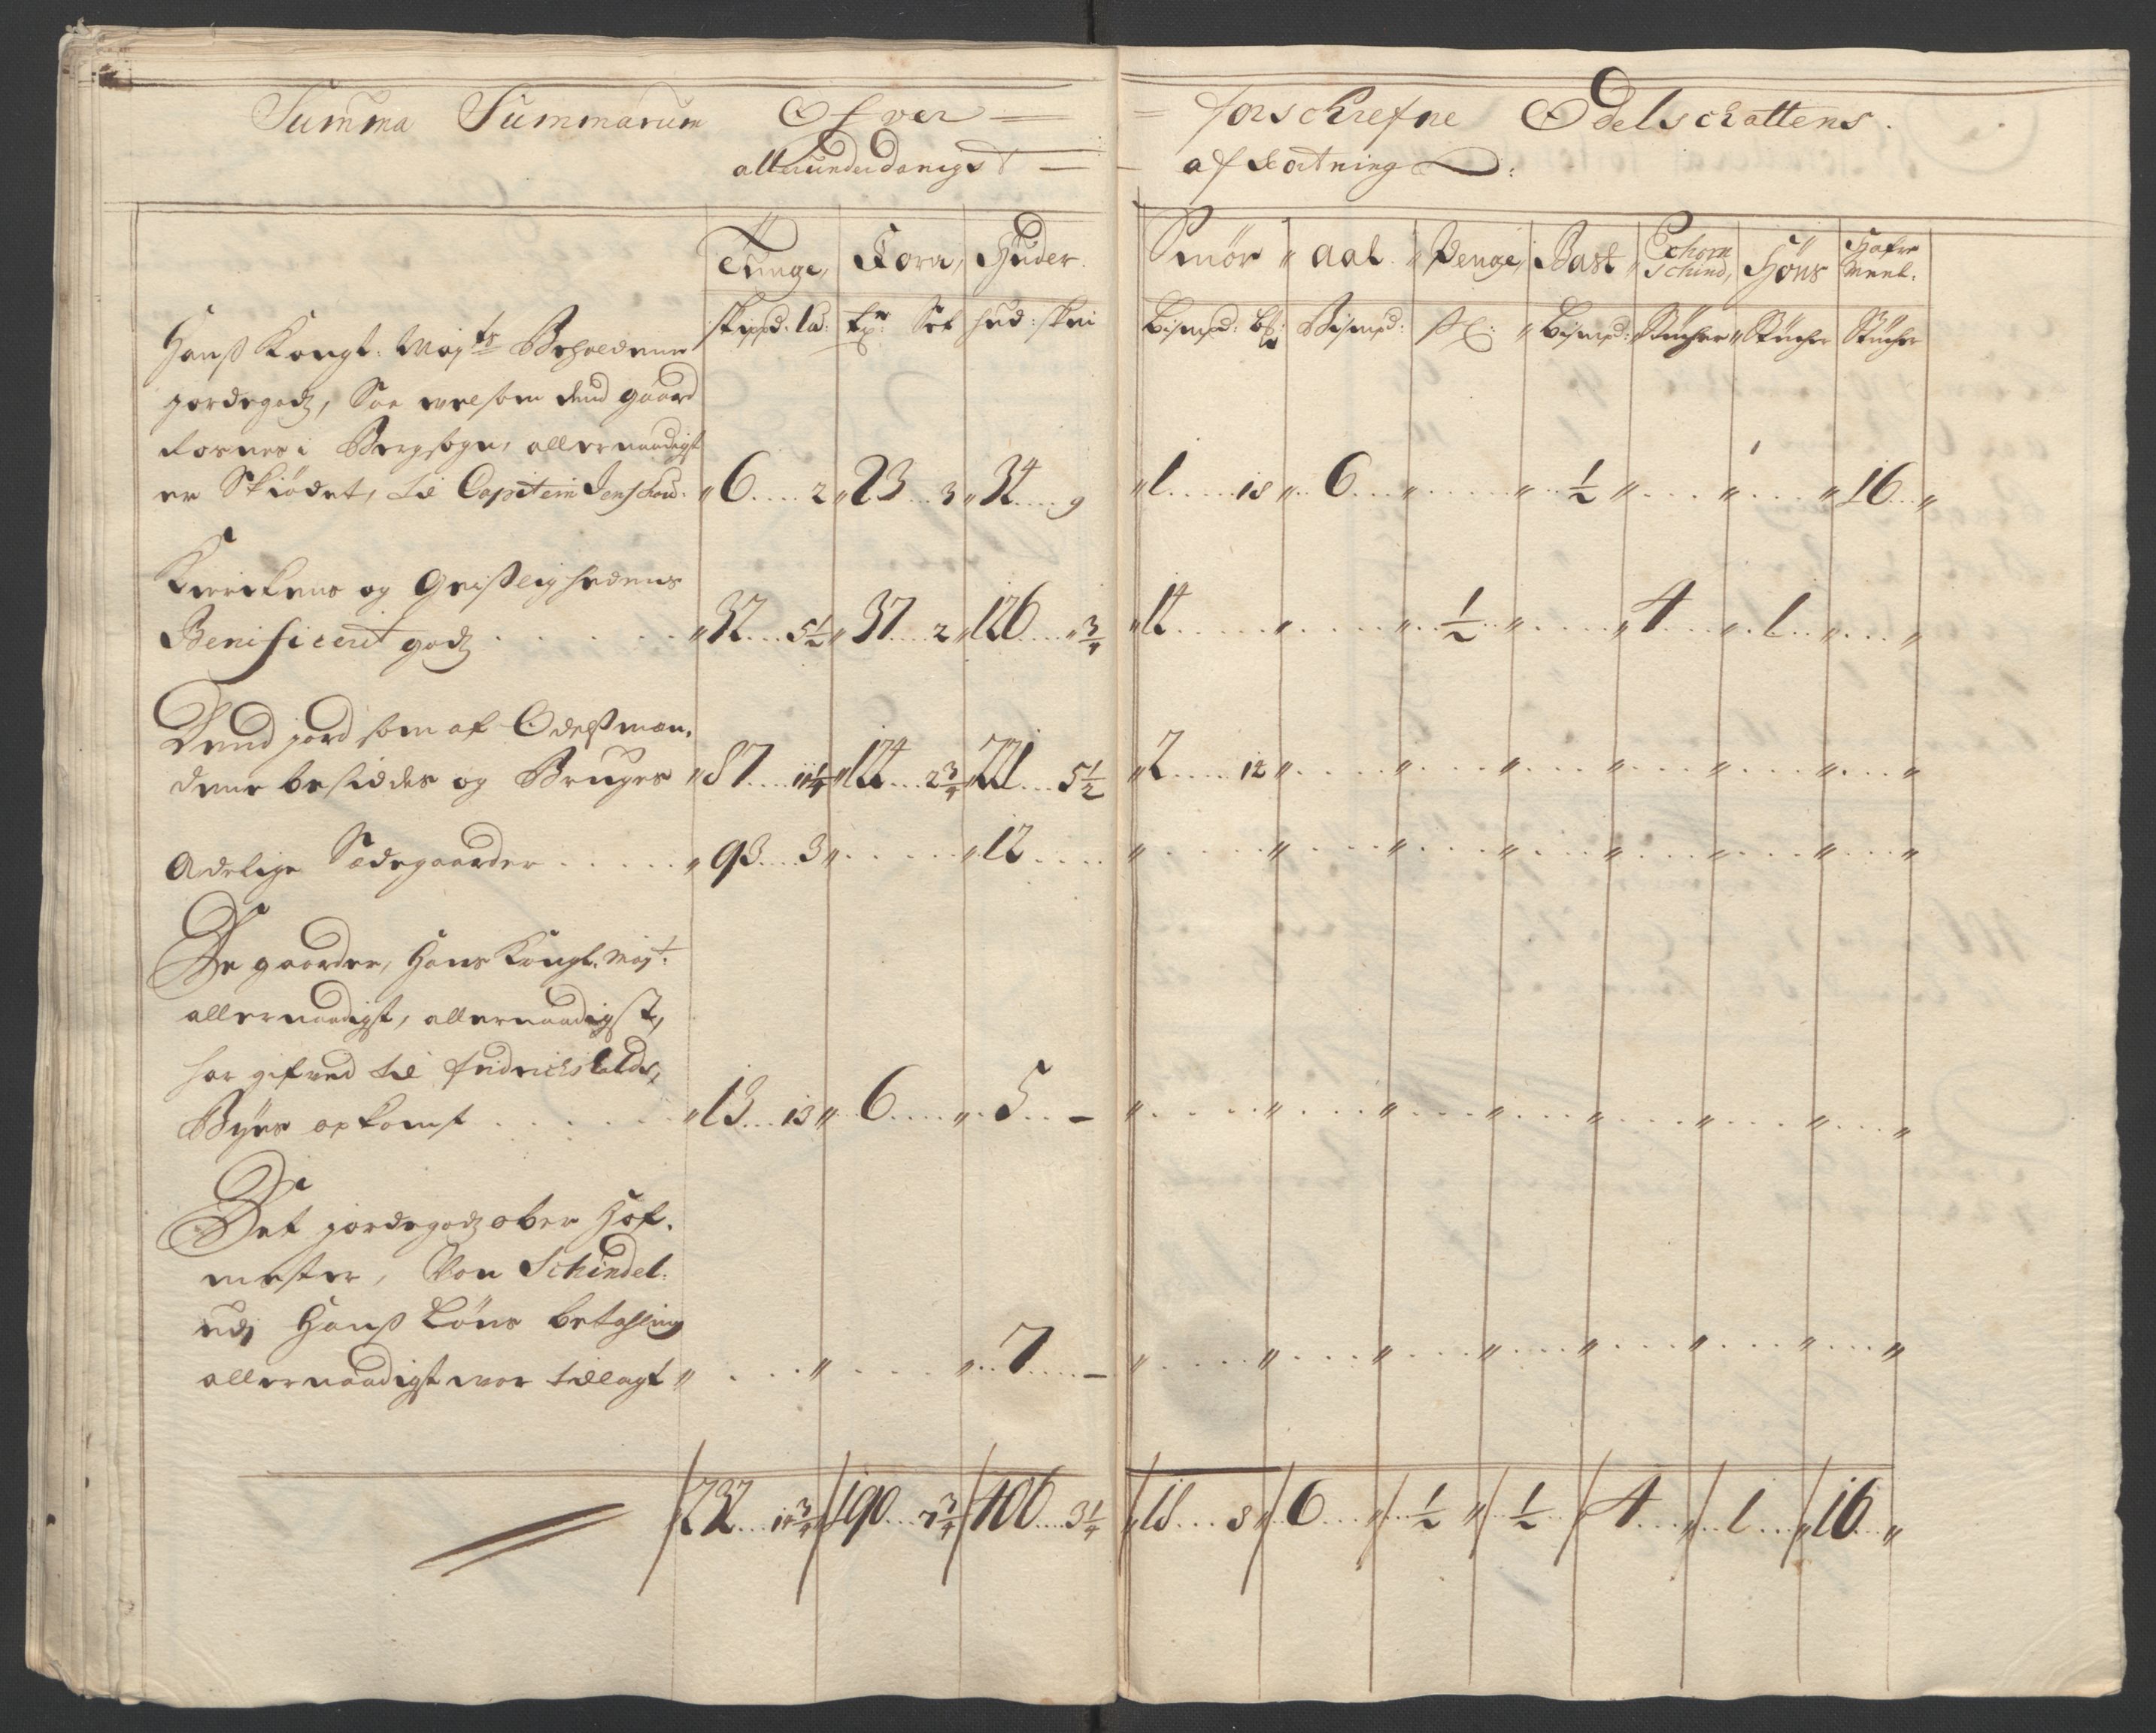 Summa Summarum Ofver = = forschrefne Odelschattens.
allerunderdanigst — — afkortning:
Tunge, Korn, Huder. Smör " Aal. " Penge, Bast " Echorn Schind, Höns Hafre Meel.
skippd. ld: tpr Set hud: skin Bismpd: Bismpd: " Bismpd: Stücher " Stücher Stücher
Hanß Kongl: Maytz Beholdene
jordegodz, Saa velsom dend gaard
fosnes i Bergsogn, allernaadigst
er Skiödet, til Capitein Jenschou. " 6.....2 " 23...3 " 34....9 " 1.....18 " 6.... " ..... " ..½ " .... " .... " 16... "
Kierckens og Geistlighedens
Benificerit godz ...... " 32....5½ " 37....2 " 126....¾ " 14...... " ..... " ..½ " .... " 4... " 1... " .... "
Dend jord som af Odelsmæn-
dene besiddes og Bruges " 87....11¼ " 124...2¾ " 221...5½ " 2.....12 " ..... " .... " .... " .... " .... " .... "
Adelige Sædegaarder ..... " 93....3 " ...... " 12.... " ..... " ..... " .... " .... " .... " .... " .... "
De gaarder, Hans Kongl. Mayt:
allernaadigst, allernaadigst,
har gifved til fridrichshalds,
Byes opkomst ..... " 13...13 " 6.... " 5... – " ..... " .... " .... " .... " .... " .... " .... "
Det jordegodz ober Hof-
mester, Von Schindel.
udj Hanß Löns betahling
allernaadigst var tillagt " .... " ..... " ..7....– " ..... " .... " .... " .... " .... " .... " .... "
232...14¾ 190...7¾ 406....3¼ " 18....8 " 6... " ..½ " ..½.. 4... " ..1... " 16.. "